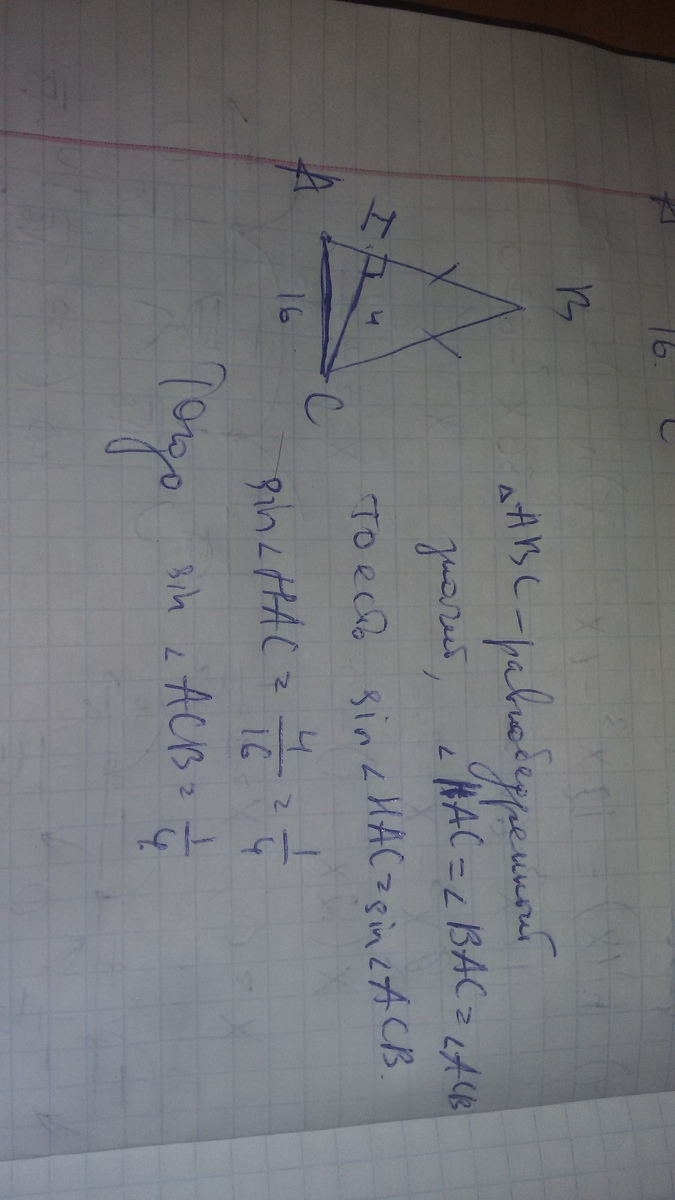 16.
B
H
4
A
16
C
△ABC – равнобедренный
значит, ∠HAC = ∠BAC = ∠ACB
то есть sin∠HAC = sin∠ACB.
sin∠HAC = 4/16 = 1/4
Тогда sin∠ACB = 1/4